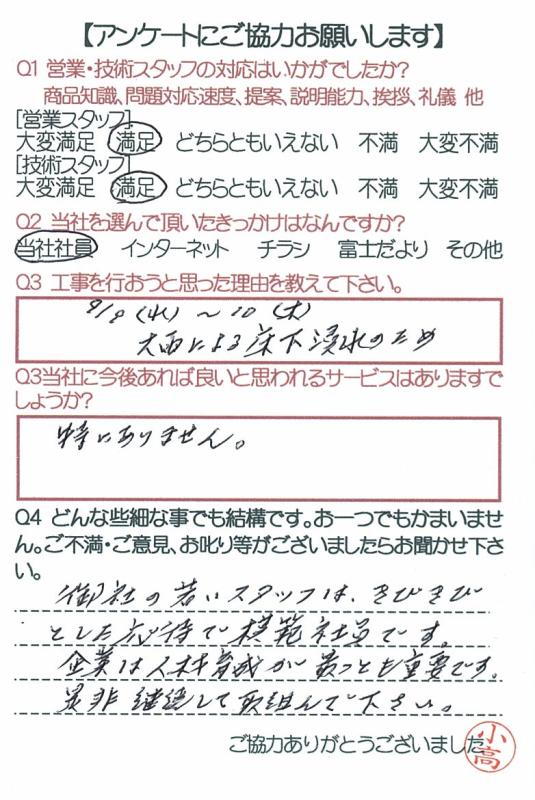 【アンケートにご協力お願いします】
Q1 営業・技術スタッフの対応はいかがでしたか?
商品知識、問題対応速度、提案、説明能力、挨拶、礼儀 他
[営業スタッフ]
大変満足 満足 どちらともいえない 不満 大変不満
[技術スタッフ]
大変満足 満足 どちらともいえない 不満 大変不満
Q2 当社を選んで頂いたきっかけはなんですか?
当社社員 インターネット チラシ 富士だより その他
Q3 工事を行おうと思った理由を教えて下さい。
9/9(水)〜10(木)
大雨による床下浸水のため
Q3当社に今後あれば良いと思われるサービスはありますで
しょうか?
特にありません。
Q4 どんな些細な事でも結構です。お一つでもかまいませ
ん。ご不満・ご意見、お叱り等がございましたらお聞かせ下さ
い。
御社の若いスタッフは、きびきび
とした応待で模範社員です。
企業は人材育成が最っとも重要です。
是非継続して取組んで下さい。
ご協力ありがとうございました
小高